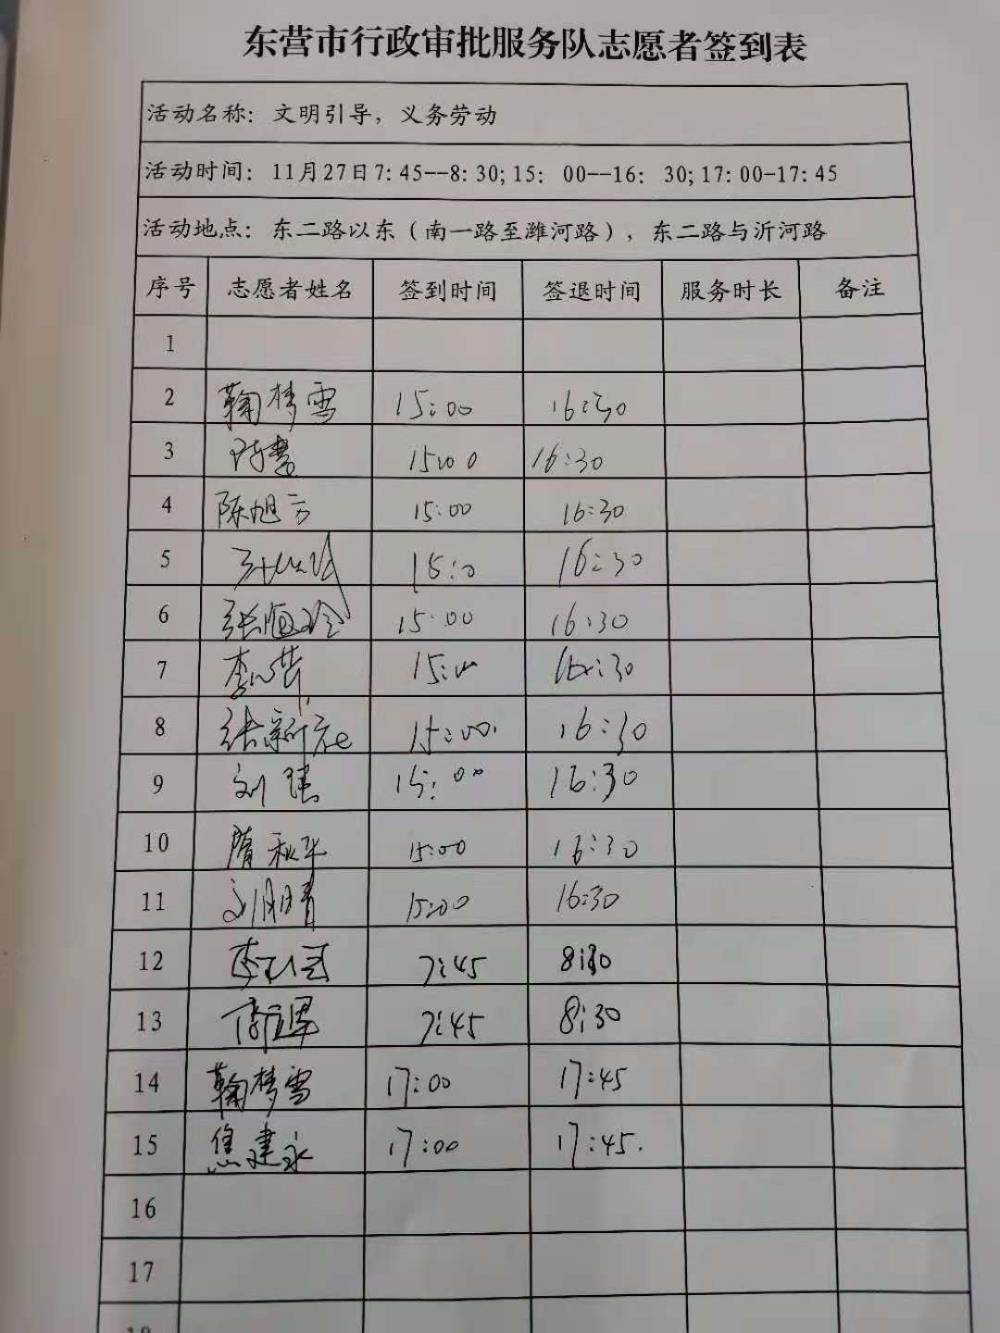 东营市行政审批服务队志愿者签到表
活动名称：文明引导，义务劳动
活动时间：11月27日7:45--8:30;15:00--16:30;17:00-17:45
活动地点：东二路以东（南一路至潍河路），东二路与沂河路
序号 志愿者姓名 签到时间 签退时间 服务时长 备注
1
2 鞠梦雪 15:00 16:30
3 15:00 16:30
4 陈旭方 15:00 16:30
5 15:0 16:30
6 15:00 16:30
7 15:00 16:30
8 15:00 16:30
9 15:00 16:30
10 隋秋平 15:00 16:30
11 刘明晴 15:00 16:30
12 7:45 8:30
13 7:45 8:30
14 鞠梦雪 17:00 17:45
15 焦建永 17:00 17:45.
16
17